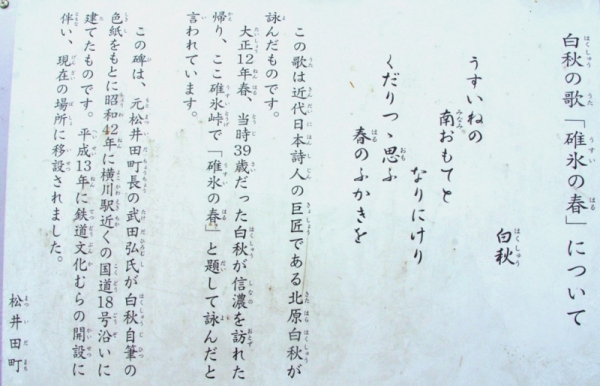 白秋の歌「碓氷の春」について
白秋
うすいねの
南おもてと
なりにけり
くだりつゝ思ふ
春のふかきを
この歌は近代日本詩人の巨匠である北原白秋が
詠んだものです。
大正12年春、当時39歳だった白秋が信濃を訪れた
帰り、ここ碓氷峠で「碓氷の春」と題して詠んだと
言われています。
この碑は、元松井田町長の武田弘氏が白秋自筆の
色紙をもとに昭和42年に横川駅近くの国道18号沿いに
建てたものです。平成13年に鉄道文化むらの開設に
伴い、現在の場所に移設されました。
松井田町